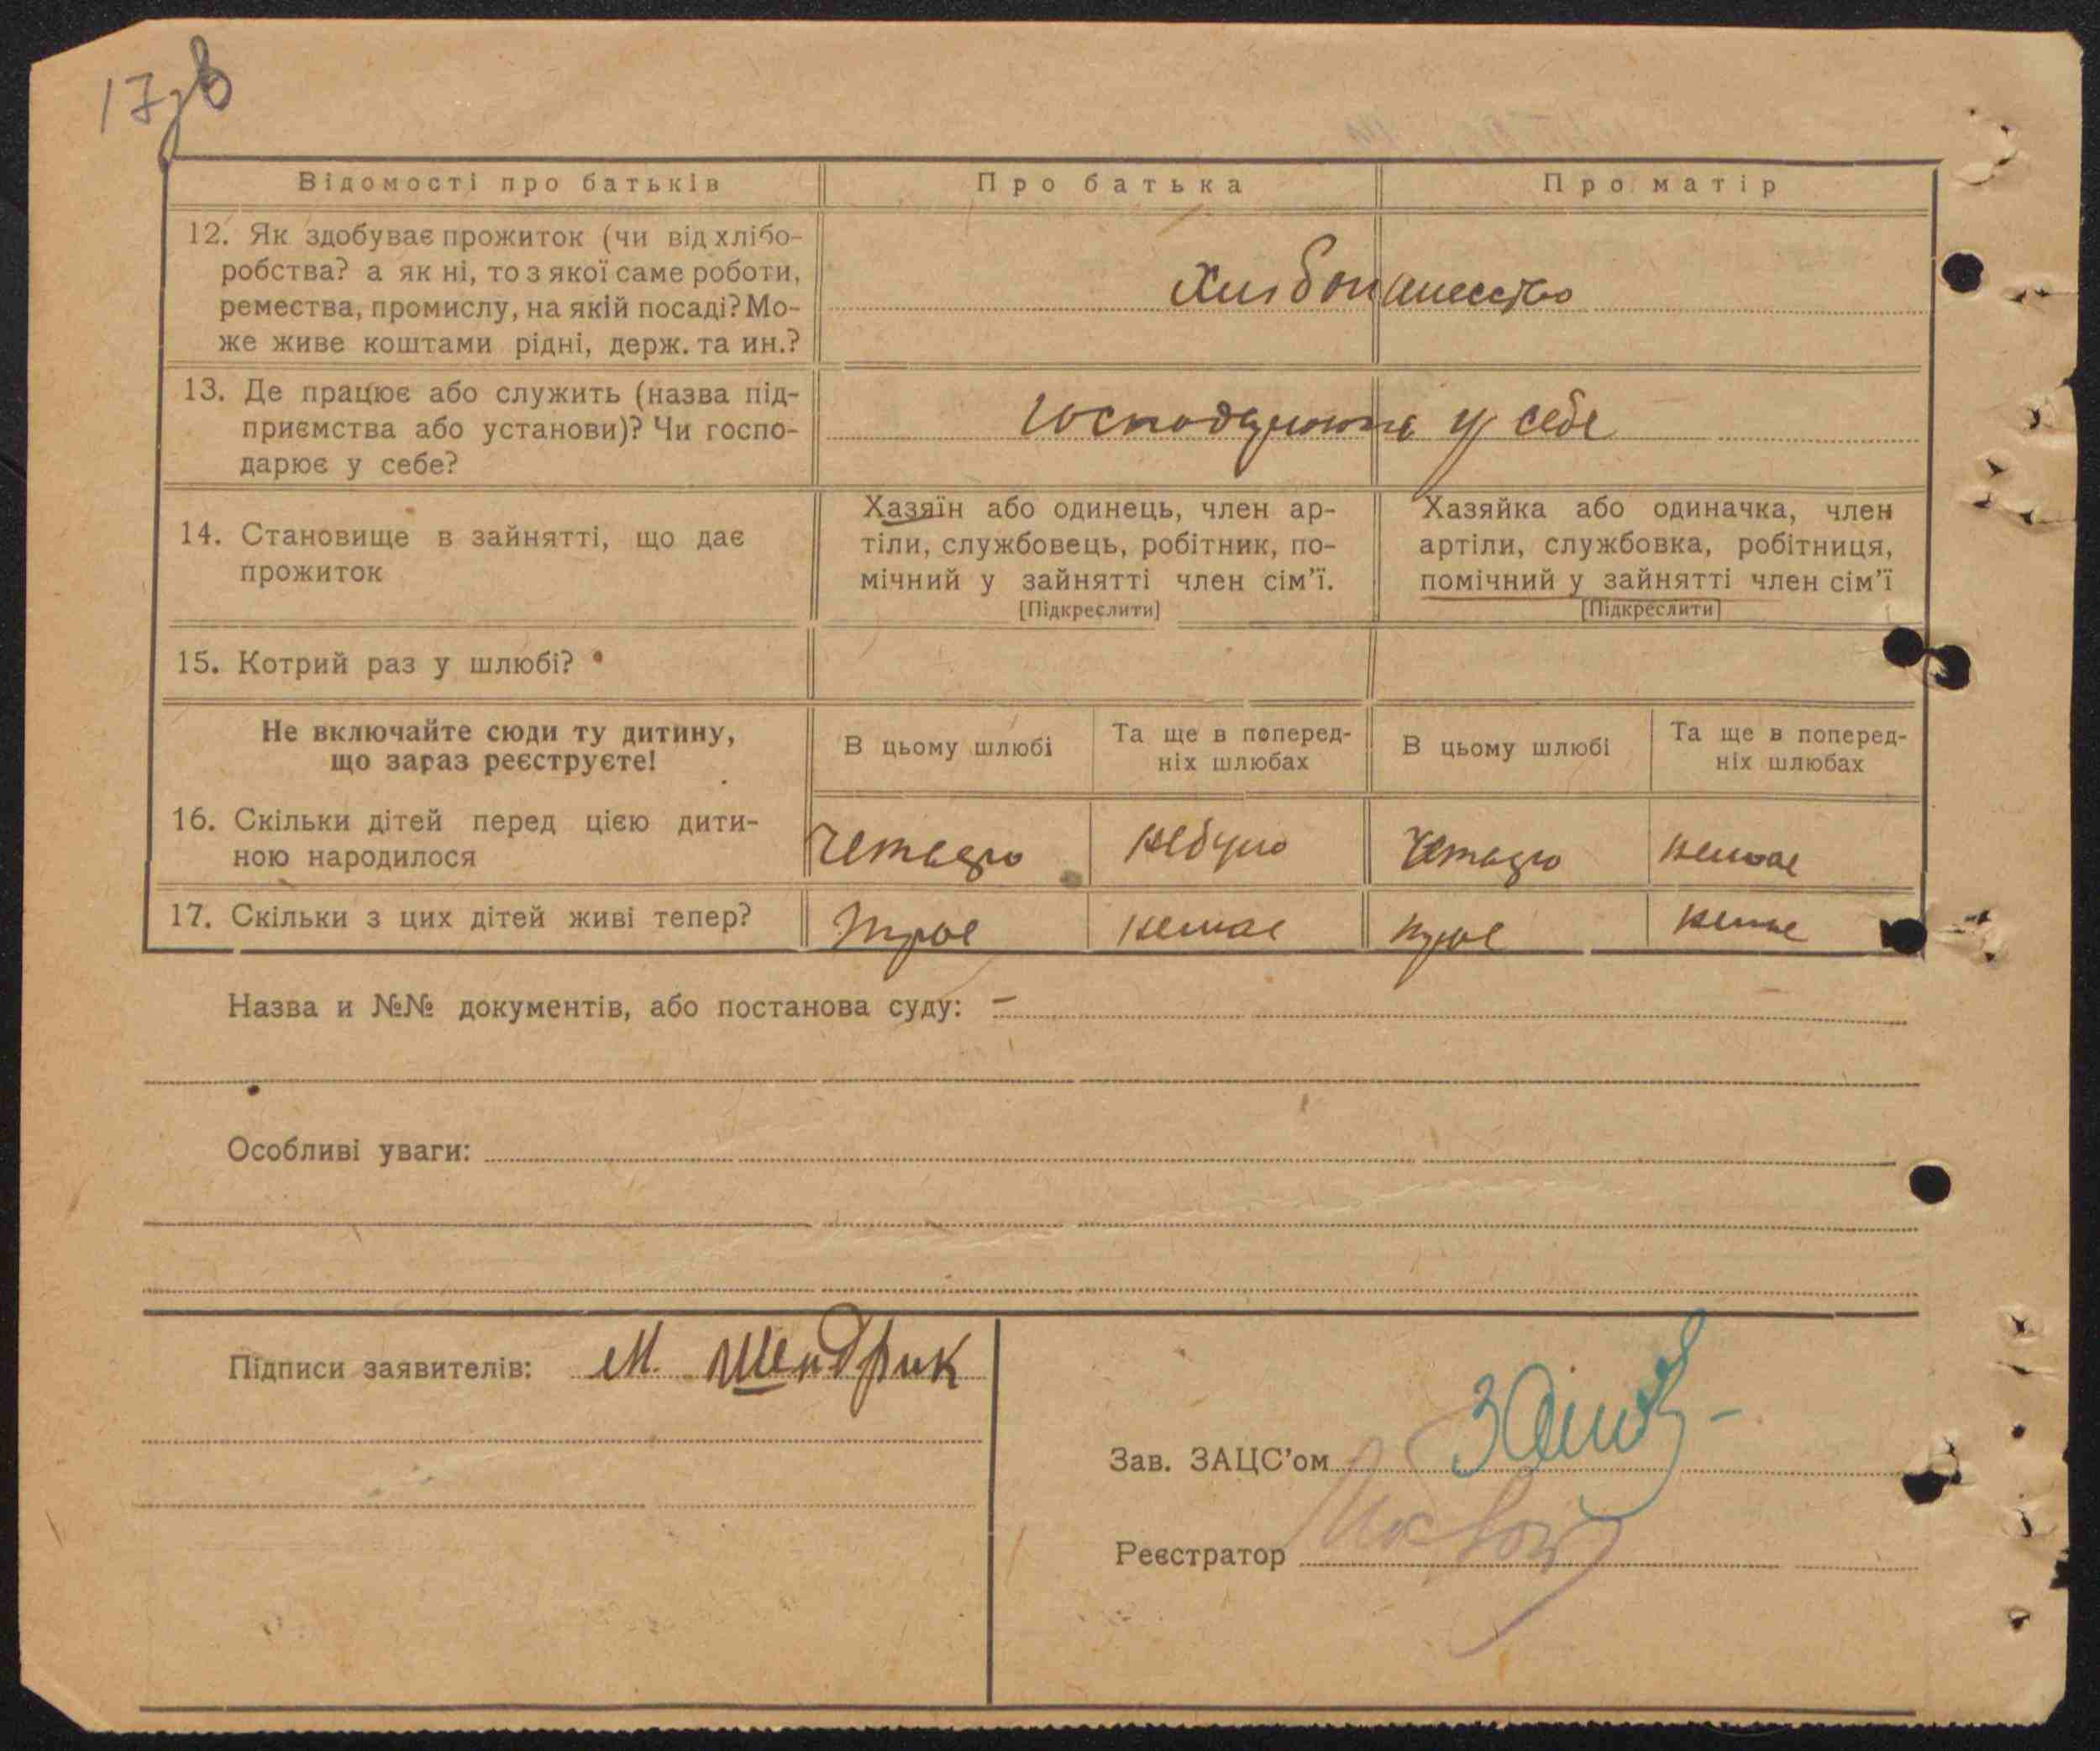 17зв
Відомості про батьків Про батька Про матір
12. Як здобуває прожиток (чи від хлібо-
робства? а як ні, то з якої саме роботи,
ремества, промислу, на якій посаді? Мо-
же живе коштами рідні, держ. та ин.?
13. Де працює або служить (назва під-
приємства або установи)? Чи госпо-
дарює у себе?
у себе
14. Становище в зайнятті, що дає
прожиток
Хазяїн або одинець, член ар-
тіли, службовець, робітник, по-
мічний у зайнятті член сім'ї.
[Підкреслити]
Хазяйка або одиначка, член
артіли, службовка, робітниця,
помічний у зайнятті член сім'ї
[Підкреслити]
15. Котрий раз у шлюбі?
Не включайте сюди ту дитину,
що зараз реєструєте!
В цьому шлюбі
Та ще в поперед-
ніх шлюбах
В цьому шлюбі
Та ще в поперед-
ніх шлюбах
16. Скільки дітей перед цією дити-
ною народилося
небуло немае
17. Скільки з цих дітей живі тепер? трое немае трое немае
Назва и №№ документів, або постанова суду: –
Особливі уваги:
Підписи заявителів: М. Шендрик
Зав. ЗАЦС'ом
Реєстратор